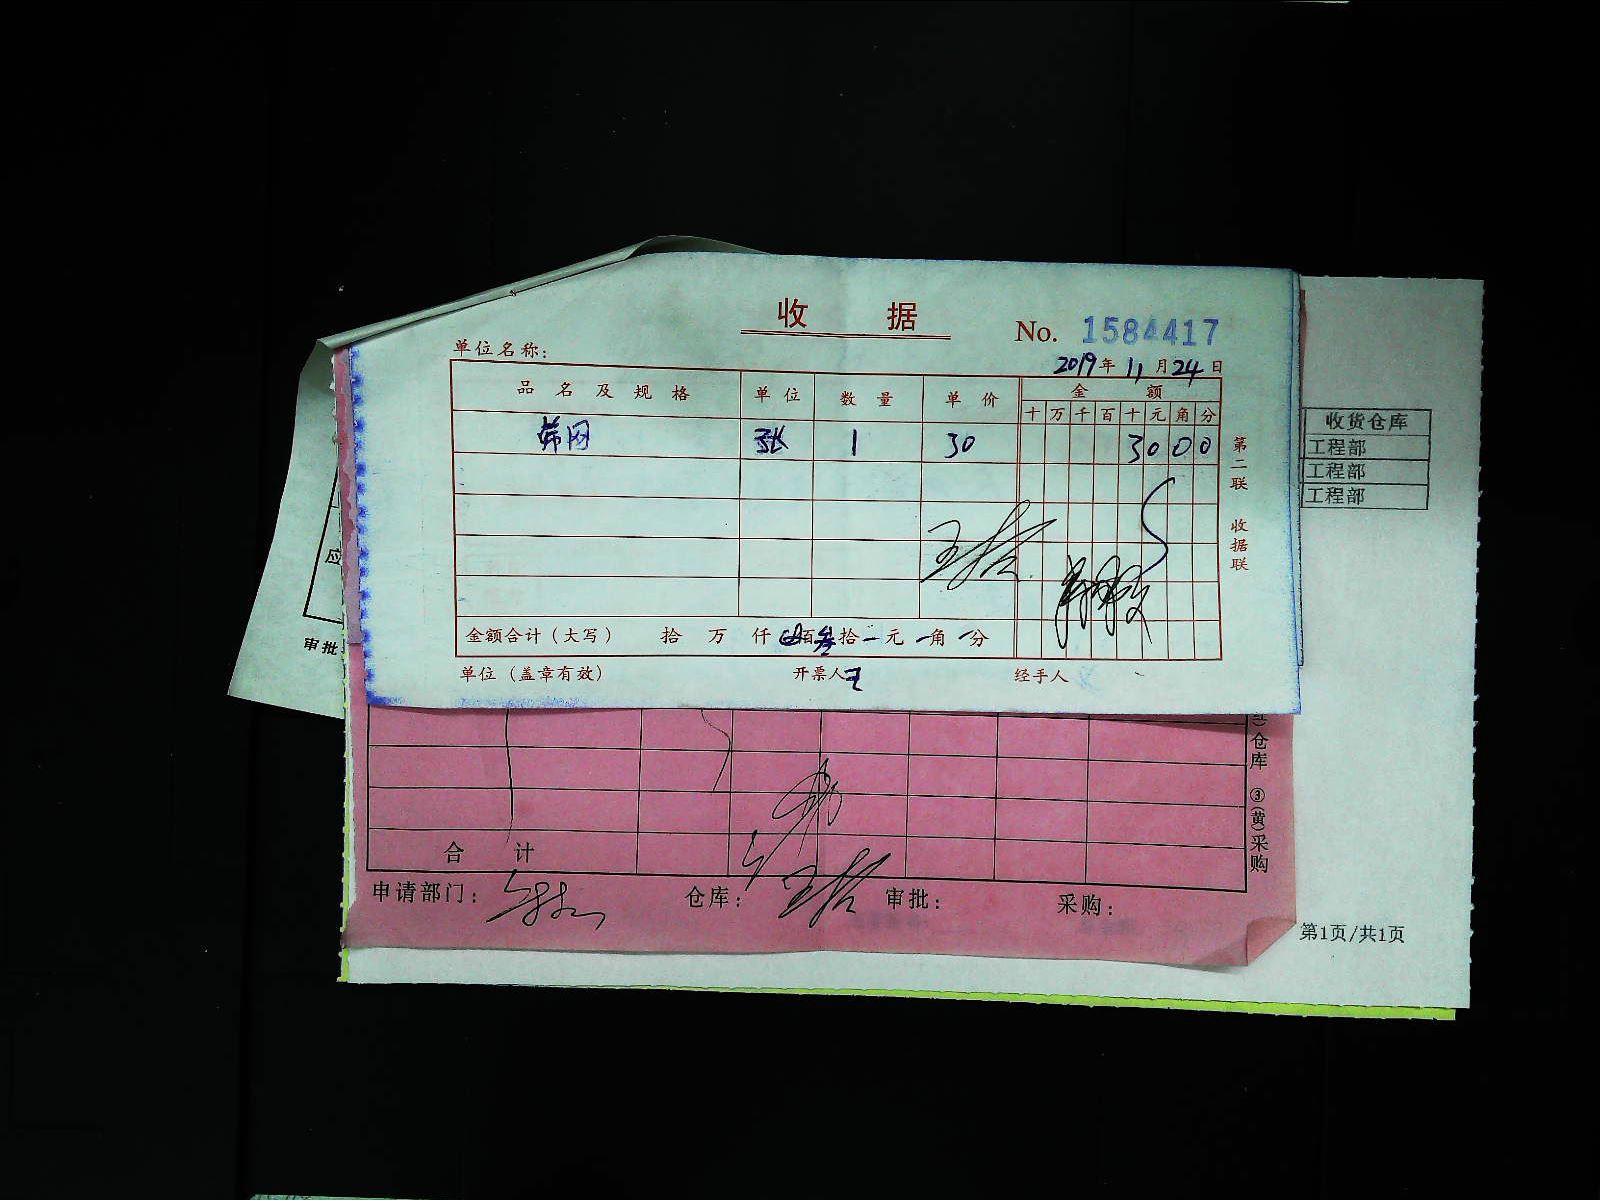 收 据
No. 1584417
单位名称：
2019年11月24日
品名及规格 单位 数量 单价 金额
十万千百十元角分
筛网 张 1 30 3000
金额合计（大写） 拾 万 仟 佰叁拾 元 角 分
单位（盖章有效） 开票人王 经手人
第二联 收据联
收货仓库
工程部
工程部
工程部
应
审批
仓库 ③(黄)采购
合 计
申请部门： 仓库： 审批： 采购：
第1页/共1页